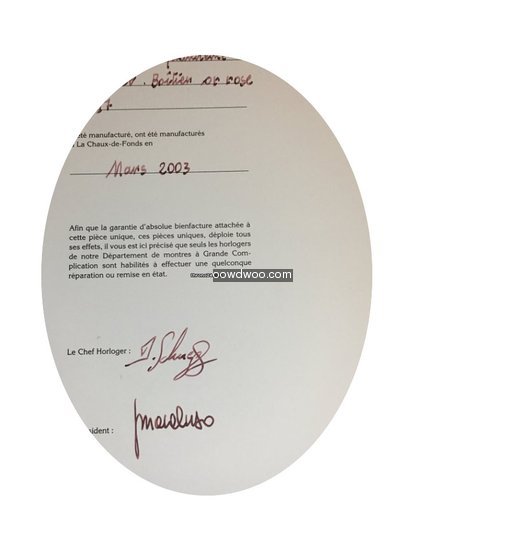 Boîtier or rose
été manufacturé, ont été manufacturés
La Chaux-de-Fonds en
Mars 2003
Afin que la garantie d'absolue bienfacture attachée à
cette pièce unique, ces pièces uniques, déploie tous
ses effets, il vous est ici précisé que seuls les horlogers
de notre Département de montres à Grande Com-
plication sont habilités à effectuer une quelconque
réparation ou remise en état.
oowdwoo.com
Le Chef Horloger :
ident :